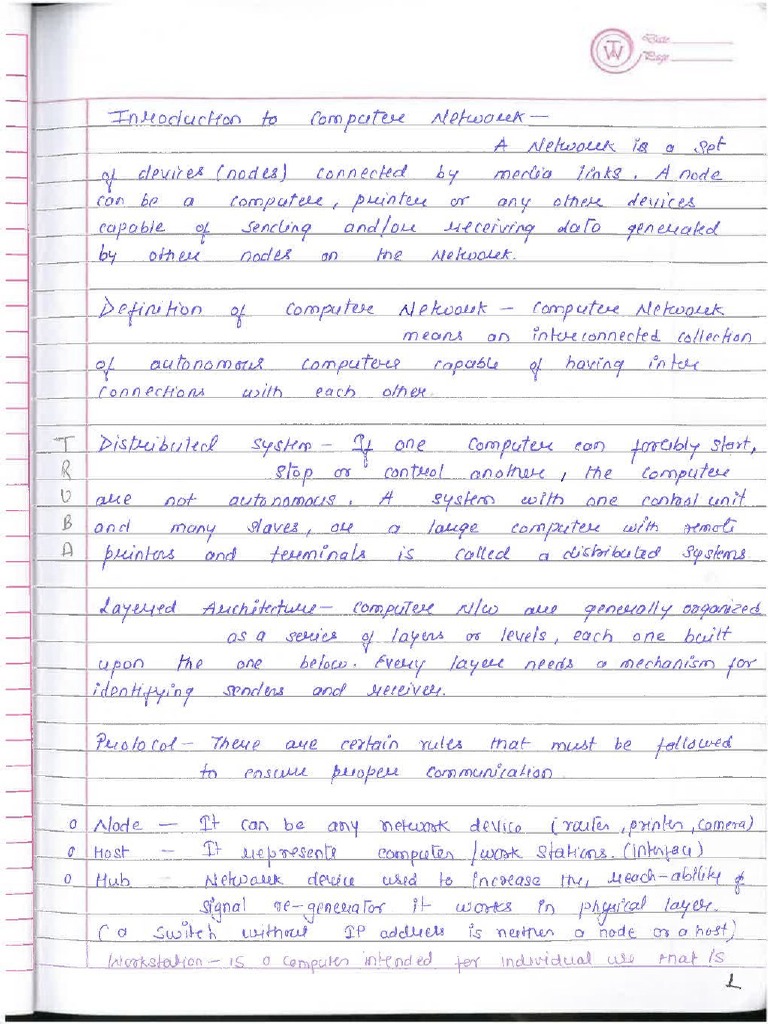 TW
Date
Page
Introduction to Computer Network —
A Network is a set
of devices (nodes) connected by media links. A node
can be a computer, printer or any other devices
capable of sending and/or receiving data generated
by other nodes on the Network.
Definition of Computer Network — Computer Network
means an interconnected collection
of autonomous computers capable of having inter
connections with each other.
Distributed System — If one computer can forcibly start,
stop or control another, the computer
are not autonomous. A system with one control unit
and many slaves, or a large computer with remote
printers and terminals is called a distributed systems
T
R
U
B
A
Layered Architecture — Computer N/w are generally organized
as a series of layers or levels, each one built
upon the one below. Every layer needs a mechanism for
identifying senders and receiver.
Protocol — There are certain rules that must be followed
to ensure proper communication
o Node — It can be any network device (router, printer, camera)
o Host — It represents computer /work stations. (Interface)
o Hub — Network device used to increase the, reach-ability of
signal re-generator it works in physical layer.
(a switch without IP address is neither a node or a host)
Workstation — is a computer intended for individual use that is
1